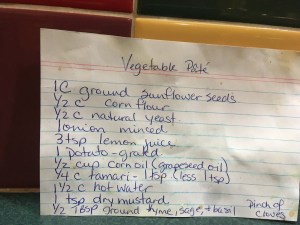 Vegetable Pâté
1 C ground sunflower seeds
1/2 c corn flour
1/2 c natural yeast
1 onion minced
3 tsp lemon juice
1 potato-grated
1/2 cup corn oil (grapeseed oil)
1/4 c tamari - 1 tsp (less 1 tsp)
1 1/2 c hot water
1 tsp dry mustard
1/2 Tbsp ground thyme, sage, + basil
Pinch of
cloves